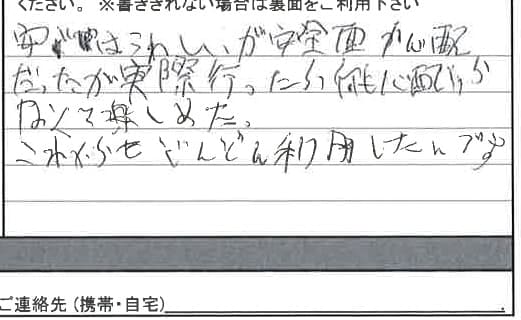 ください。 ※書ききれない場合は裏面をご利用下さい
安いはうれしいが安全面が心配
だったが実際行ったら何も心配いら
なくて楽しめた。
これからもどんどん利用したいです
ご連絡先 (携帯・自宅)